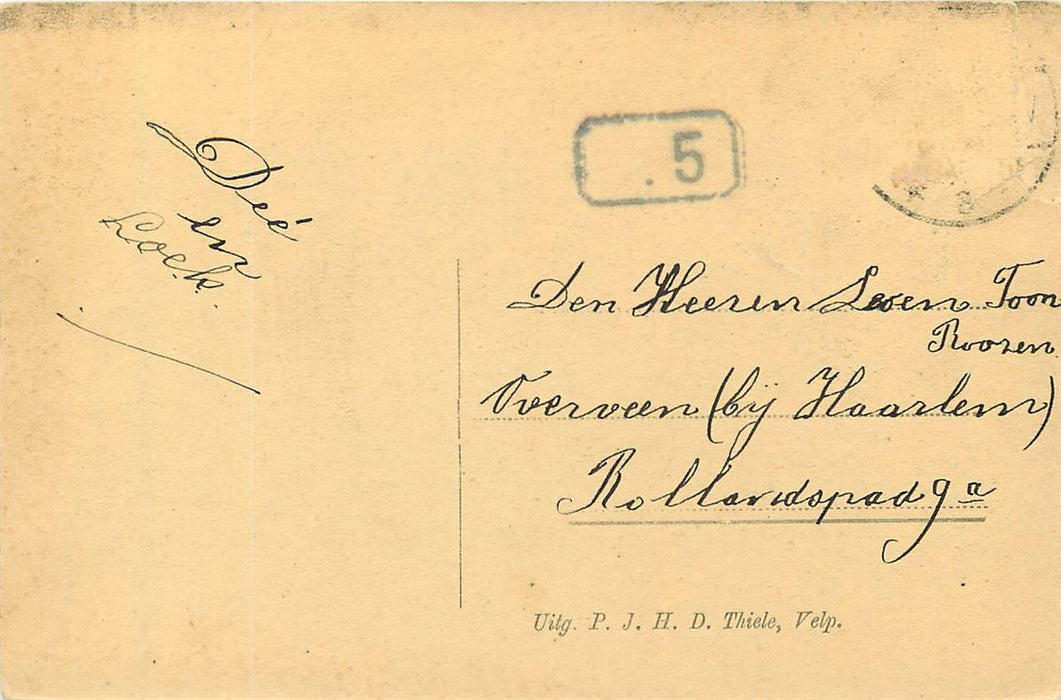 Deé
en
Loek.
. 5
* 3
Den Heeren Toon
Roozen
Overveen (bij Haarlem)
Rollandspad 9 a
Uitg. P. J. H. D. Thiele, Velp.